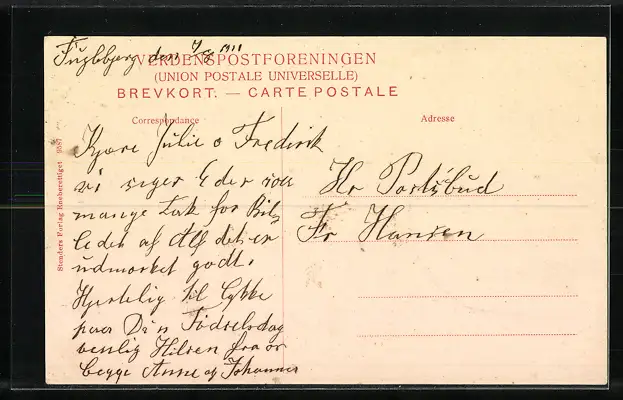 Fuglbjerg den 4/8 1911
VERDENSPOSTFORENINGEN
(UNION POSTALE UNIVERSELLE)
BREVKORT. — CARTE POSTALE
Correspondance
Adresse
Kjære Julie o Fredirik
vi siger Eder saa
mange Tak for Bil
ledet af Alf det er
udmærket godt.
Hjertelig til Lykke
paa Din Födselsdag
venlig Hilsen fra os
begge Anne og Johannes
Hr Portsbud
Fr Hansen
Stenders Forlag Eneberettiget 9587